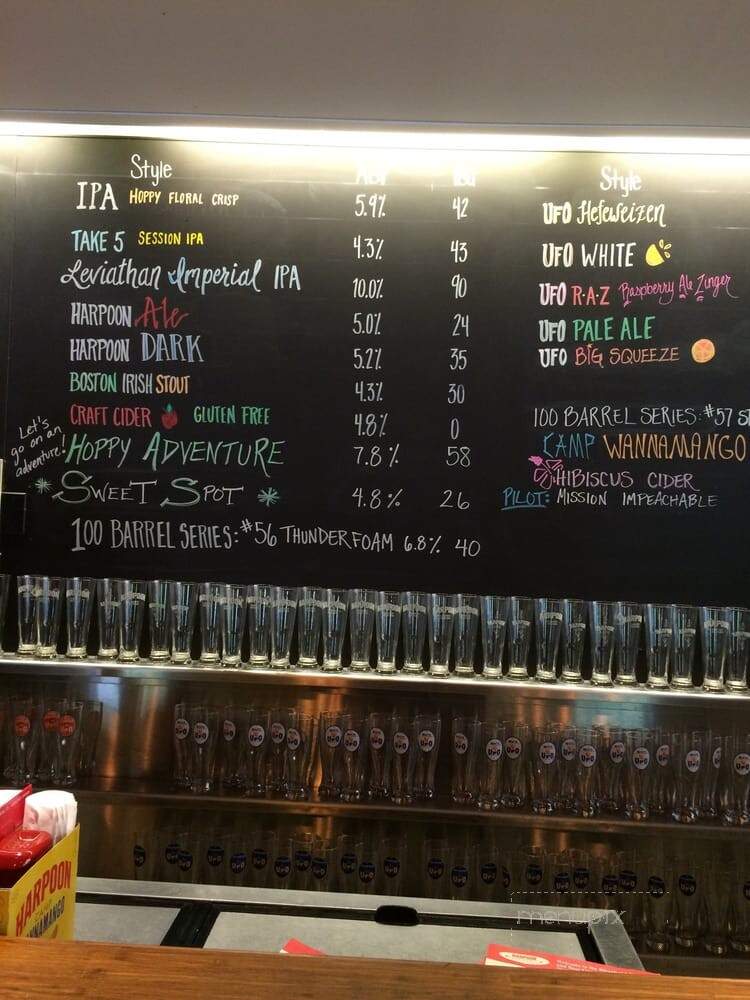 Style
IPA HOPPY FLORAL CRISP 5.9% 42
TAKE 5 SESSION IPA 4.3% 43
Leviathan Imperial IPA 10.0% 90
HARPOON Ale 5.0% 24
HARPOON DARK 5.2% 35
BOSTON IRISH STOUT 4.3% 30
CRAFT CIDER GLUTEN FREE 4.8% 0
Let's go on an adventure!
HOPPY ADVENTURE 7.8% 58
SWEET SPOT 4.8% 26
100 BARREL SERIES: #56 THUNDER FOAM 6.8% 40
Style
UFO Hefeweizen
UFO WHITE
UFO R·A·Z Raspberry Ale Zinger
UFO PALE ALE
UFO BIG SQUEEZE
100 BARREL SERIES: #57
CAMP WANNAMANGO
HIBISCUS CIDER
PILOT: MISSION IMPEACHABLE
HARPOON
menupix